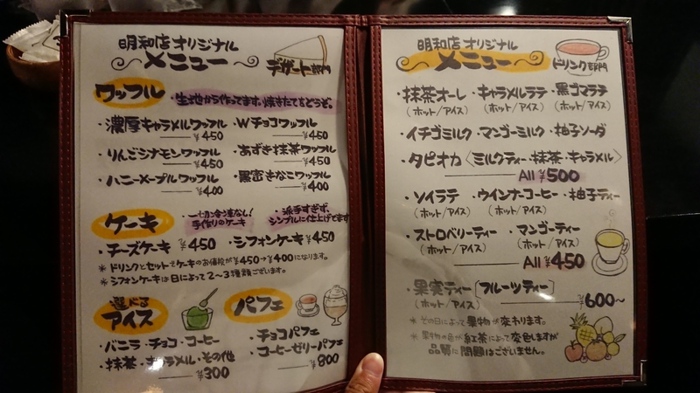 明和店オリジナル
メニュー
デザート部門
ワッフル
・生地から作ってます。焼きたてをどうぞ。
・濃厚キャラメルワッフル ¥450
・Wチョコワッフル ¥450
・りんごシナモンワッフル ¥450
・あずき抹茶ワッフル ¥450
・ハニーメープルワッフル ¥400
・黒蜜きなこワッフル ¥400
ケーキ
・一切冷凍なし!
手作りのケーキ
・派手すぎず、
シンプルに仕上げてます
・チーズケーキ ¥450
・シフォンケーキ ¥450
*ドリンクとセットでケーキのお値段が¥450→¥400になります。
*シフォンケーキは日によって2~3種類ございます。
選べる
アイス
・バニラ・チョコ・コーヒー
・抹茶・キャラメル・その他
¥300
パフェ
・チョコパフェ
・コーヒーゼリーパフェ
¥800
明和店オリジナル
メニュー
ドリンク部門
・抹茶オーレ ・キャラメルラテ ・黒ゴマラテ
(ホット/アイス) (ホット/アイス) (ホット/アイス)
・イチゴミルク ・マンゴーミルク ・柚子ソーダ
・タピオカ〈ミルクティー・抹茶・キャラメル〉
All ¥500
・ソイラテ ・ウインナーコーヒー ・柚子ティー
(ホット/アイス) (ホット/アイス) (ホット/アイス)
・ストロベリーティー ・マンゴーティー
(ホット/アイス) (ホット/アイス)
All ¥450
・果実ティー[フルーツティー]
(ホット/アイス) ¥600~
*その日によって果物が変わります。
*果物の色が紅茶によって変色しますが
品質に問題はございません。